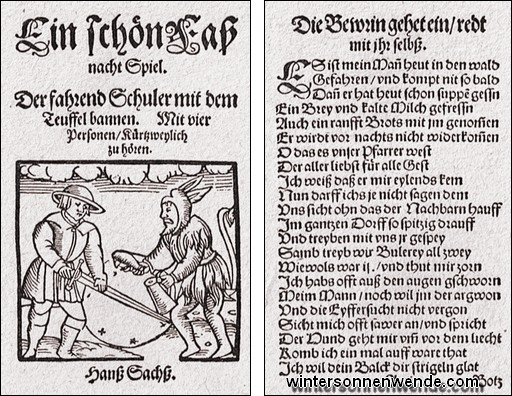 Ein schön Faß
nacht Spiel.
Der fahrend Schuler mit dem
Teuffel bannen. Mit vier
Personen/Kürtzweylich
zu hören.
Hanß Sachß.
Die Bewrin gehet ein/redt
mit jhr selbß.
ES ist mein Mañ heut in den wald
Gefahren/vnd kompt nit so bald
Dañ er hat heut schon suppẽ gessn
Ein Brey vnd kalte Milch gefressn
Auch ein ranfft Brots mit jm genom̃en
Er wirdt vor nachts nicht widerkom̃en
O das es vnser Pfarrer west
Der aller liebst für alle Gest
Ich weiß daß er mir eylends kem
Nun darff ichs je nicht sagen dem
Vns sicht ohn das der Nachbarn hauff
Im gantzen Dorff so spitzig drauff
Vnd treyben mit vns jr gespey
Samb treyb wir Bulerey all zwey
Wiewols war ij./vnd thut mir zorn
Ich habs offt auß den augen gschworn
Meim Mann/noch wil jm der argwon
Vnd die Eyffersucht nicht vergon
Sicht mich offt sawer an/vnd spricht
Der Hund geht mir vm̃ vor dem liecht
Komb ich ein mal auff ware that
Ich wil dein Balck dir strigeln glat
Botz
wintersonnenwende.com
wintersonnenwende.com